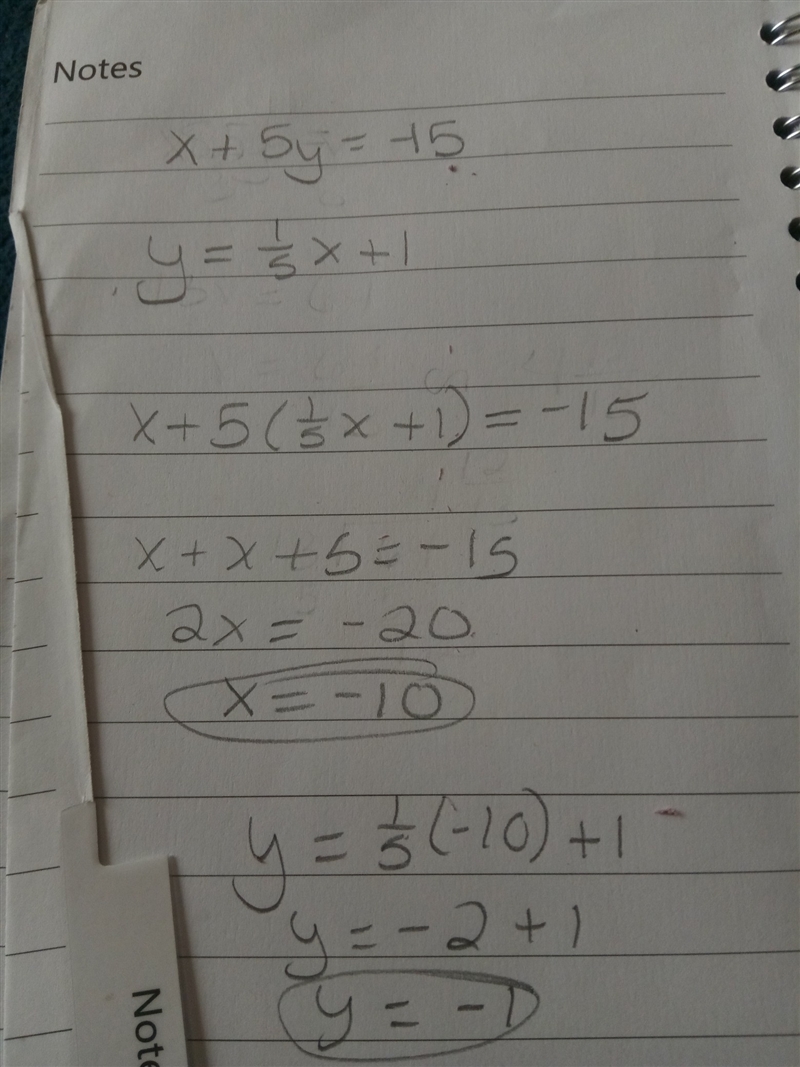 Notes
x + 5y = -15
y = 1/5 x + 1
x + 5 ( 1/5 x + 1 ) = -15
x + x + 5 = -15
2x = -20
x = -10
y = 1/5 (-10) + 1
y = -2 + 1
y = -1
Note